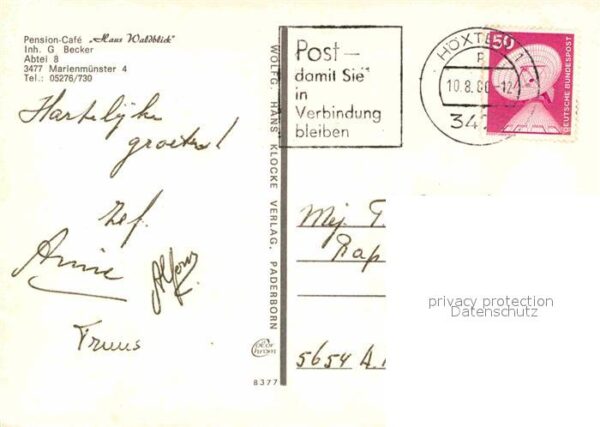 Pension-Café „Haus Waldblick"
Inh. G Becker
Abtei 8
3477 Marienmünster 4
Tel.: 05276/730
Hartelijke
groeten!
Zef.
Annie
Alfons
Truus
WOLFG. HANS KLOCKE VERLAG, PADERBORN
color
chrom
8377
Post –
damit Sie
in
Verbindung
bleiben
HÖXTER 1
10.8.80-12
347
50
DEUTSCHE BUNDESPOST
Mej. T.
Rap
5654 A.
privacy protection
Datenschutz